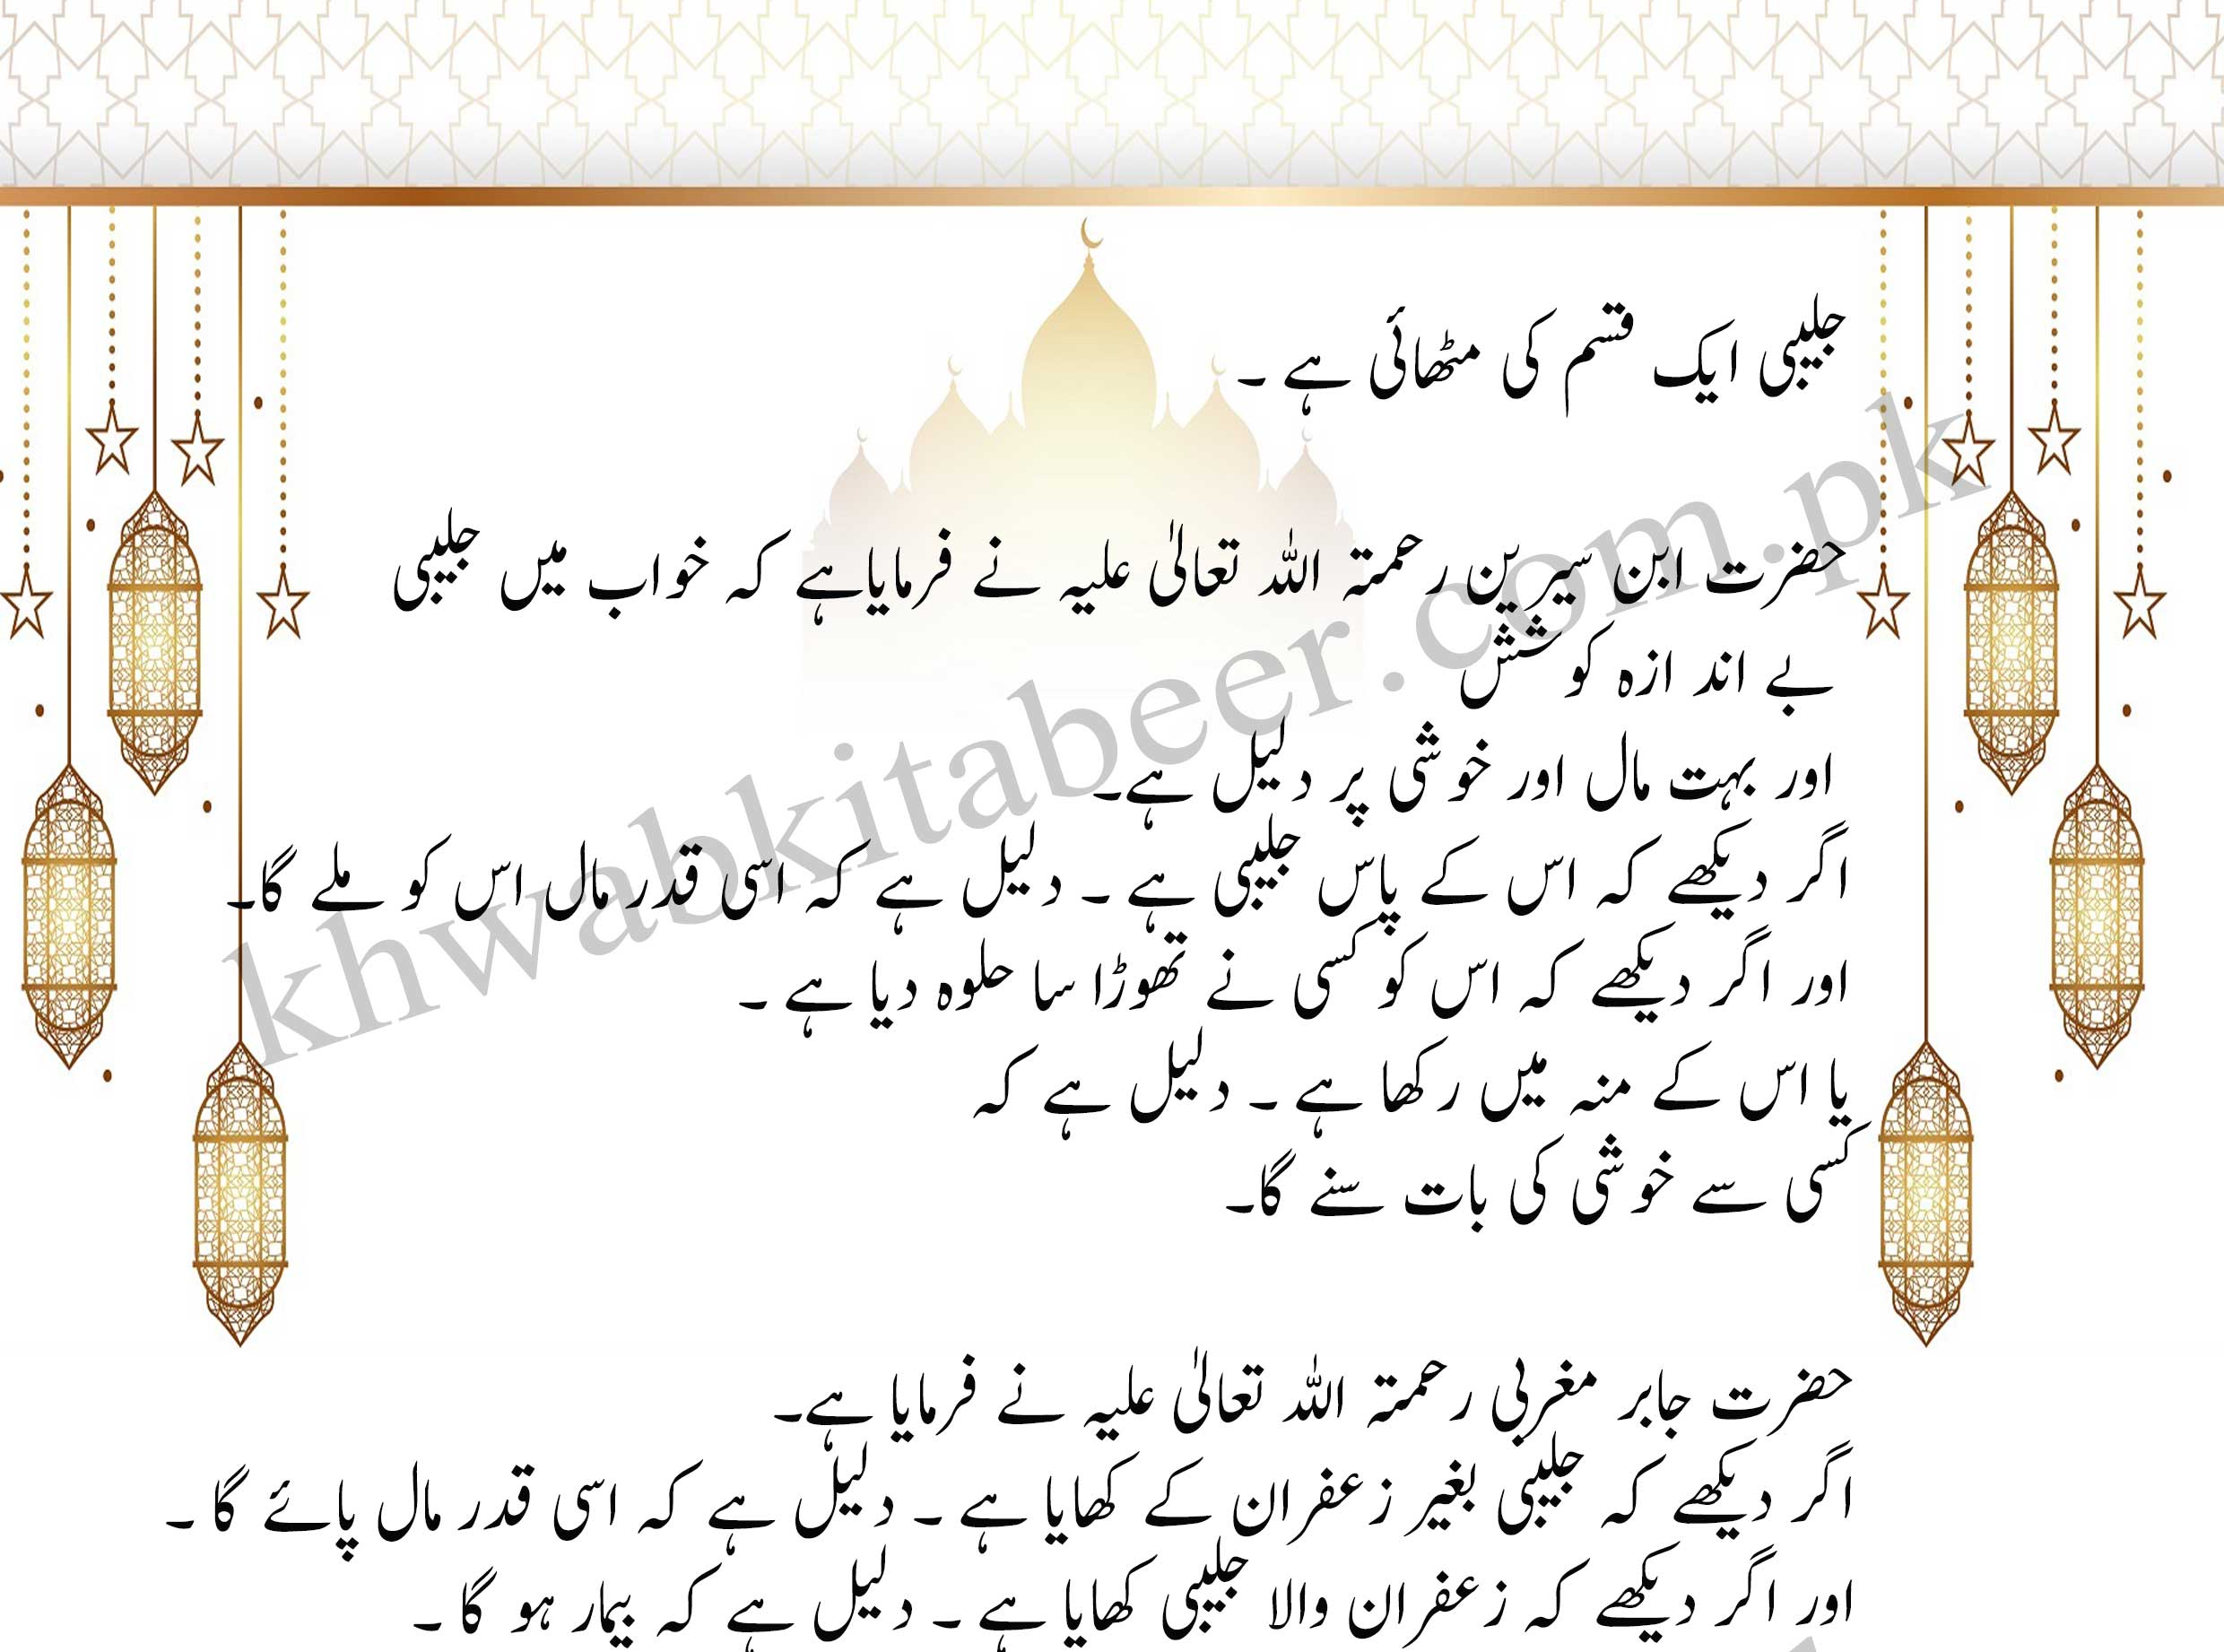 جلیبی ایک قسم کی مٹھائی ہے ۔
حضرت ابن سیرین رحمتہ اللہ تعالیٰ علیہ نے فرمایاہے کہ خواب میں جلیبی
بے اند ازہ کوشش
اور بہت مال اور خوشی پر دلیل ہے۔
اگر دیکھے کہ اس کے پاس جلیبی ہے ۔ دلیل ہے کہ اسی قدر مال اس کو ملے گا۔
اور اگر دیکھے کہ اس کو کسی نے تھوڑا سا حلوہ دیا ہے ۔
یا اس کے منہ میں رکھا ہے ۔ دلیل ہے کہ
کسی سے خوشی کی بات سنے گا۔
حضرت جابر مغربی رحمتہ اللہ تعالیٰ علیہ نے فرمایا ہے۔
اگر دیکھے کہ جلیبی بغیر زعفران کے کھایا ہے ۔ دلیل ہے کہ اسی قدر مال پائے گا ۔
اور اگر دیکھے کہ زعفران والا جلیبی کھایا ہے ۔ دلیل ہے کہ بیمار ہو گا ۔
khwabkitabeer.com.pk